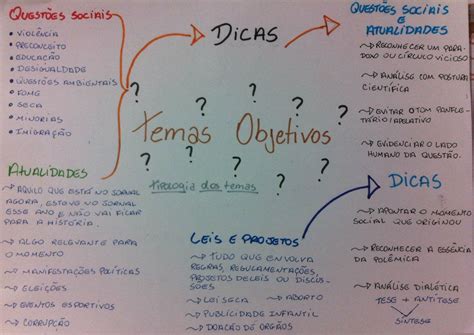 QUESTÕES SOCIAIS
• VIOLÊNCIA
• PRECONCEITO
• EDUCAÇÃO
• DESIGUALDADE
• QUESTÕES AMBIENTAIS
• FOME
• SECA
• MINORIAS
• IMIGRAÇÃO
DICAS
QUESTÕES SOCIAIS
E
ATUALIDADES
RECONHECER UM PARA-
DOXO OU CÍRCULO VICIOSO
ANÁLISE COM POSTURA
CIENTÍFICA
EVITAR O TOM PANFLE-
TÁRIO/APELATIVO
EVIDENCIAR O LADO
HUMANO DA QUESTÃO.
? ? ? ? ?
Temas Objetivos
? ? ? ? ? ?
Tipologia dos temas
ATUALIDADES
AQUILO QUE ESTÁ NO JORNAL
AGORA, ESTEVE NO JORNAL
ESSE ANO E NÃO VAI FICAR
PARA A HISTÓRIA.
ALGO RELEVANTE PARA
O MOMENTO
MANIFESTAÇÕES POLÍTICAS
ELEIÇÕES
EVENTOS ESPORTIVOS
CORRUPÇÃO
LEIS E PROJETOS
TUDO QUE ENVOLVA
REGRAS, REGULAMENTAÇÕES,
PROJETOS DE LEIS OU DISCUS-
SÕES
LEI SECA ABORTO
PUBLICIDADE INFANTIL
DOAÇÃO DE ORGÃOS
DICAS
APONTAR O MOMENTO
SOCIAL QUE ORIGINOU
RECONHECER A ESSÊNCIA
DA POLÊMICA
ANÁLISE DIALÓTICA
TESE + ANTÍTESE
SÍNTESE